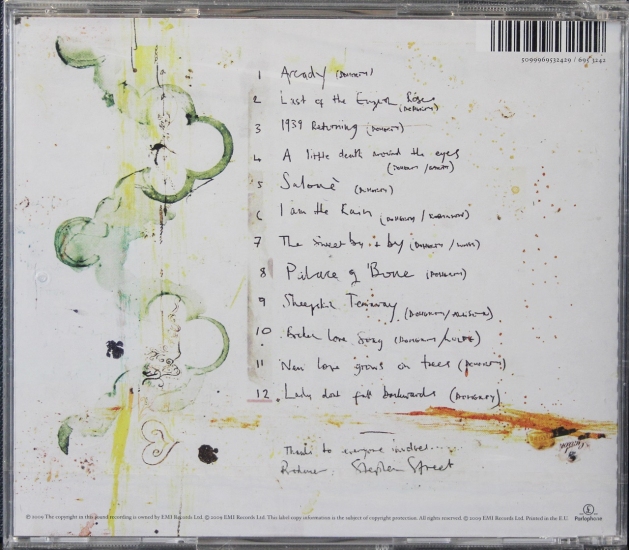 5099969532429 / 695 3242
1 Arcady (DOHERTY)
2 Last of the English Roses
(DOHERTY)
3 1939 Returning (DOHERTY)
4 A little death around the eyes
(DOHERTY / BARAT)
5 Salomè (DOHERTY)
6 I am the Rain (DOHERTY / ROBINSON)
7 The Sweet by & by (DOHERTY /
8 Palace of Bone (DOHERTY)
9 Sheepskin Tearaway (DOHERTY / ALLISON)
10 Broken Love Song (DOHERTY / WOLFE)
11 New love grows on trees (DOHERTY)
12. Lady dont fall backwards (DOHERTY)
Thanks to everyone involved.....
Producer: Stephen Street
© 2009 The copyright in this sound recording is owned by EMI Records Ltd. © 2009 EMI Records Ltd. This label copy information is the subject of copyright protection. All rights reserved. © 2009 EMI Records Ltd. Printed in the E.U
Parlophone